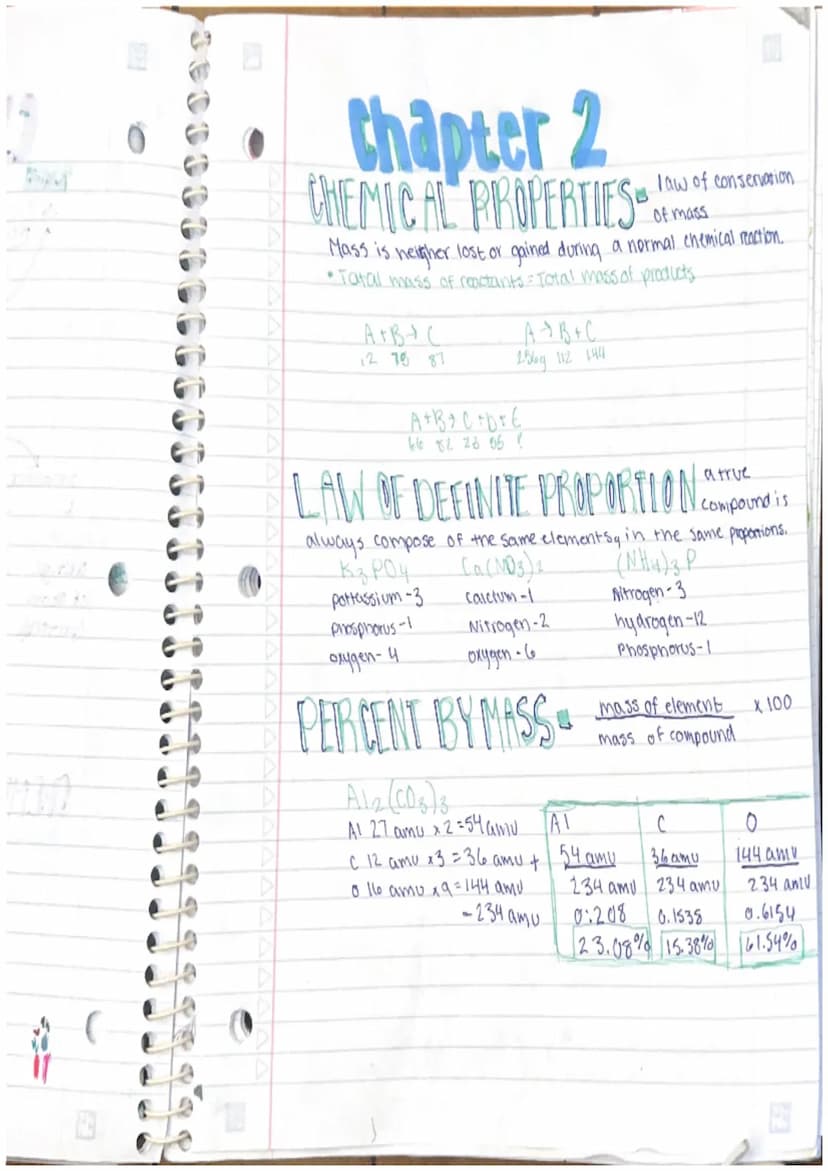 Chapter 2
CHEMICAL PROPERTIES- law of conservation
of mass
Mass is neigher lost or gained during a normal chemical reaction.
• Total mass of reactants = Total mass of products
A+B→C A→B+C
12 87 256g 112 144
A+B→C+D+E
?
LAW OF DEFINITE PROPORTION a true
compound is
always compose of the same elements, in the same proportions.
K3PO4 Ca(NO3)2 (NH4)3P
pottassium-3 calcium-1 Nitrogen-3
phosphorus-1 Nitrogen-2 hydrogen-12
oxygen-4 oxygen-6 Phosphorus-1
PERCENT BY MASS- mass of element x 100
mass of compound
Al2(CO3)3
Al 27 amu x2=54 amu Al C O
C 12 amu x3=36 amu + 54 amu 36 amu 144 amu
O 16 amu x9=144 amu 234 amu 234 amu 234 amu
=234 amu 0.208 0.1538 0.6154
23.08% 15.38% 61.54%